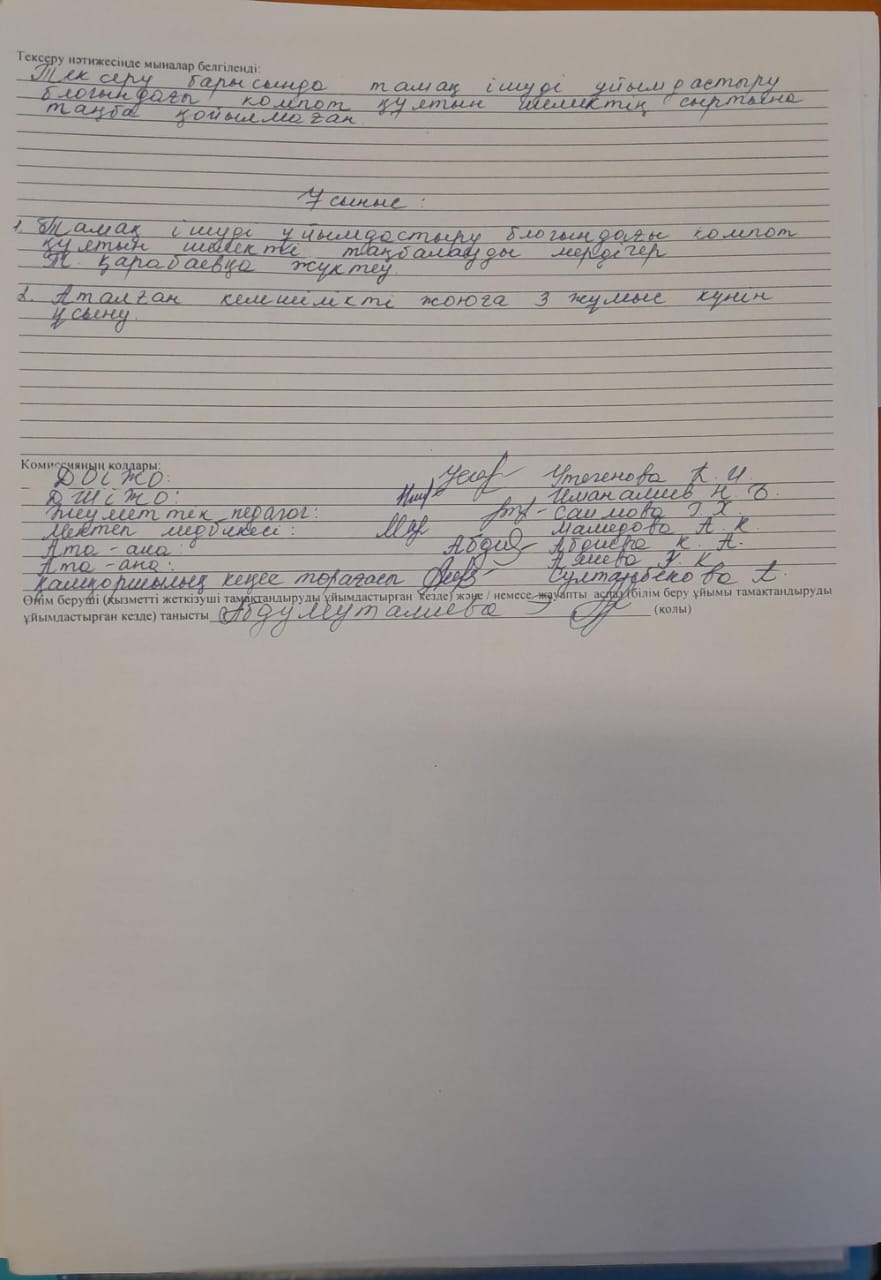 Тексеру нәтижесінде мыналар белгіленді:
Тексеру барысында тамақ ішуді ұйымдастыру
блогындағы компот құятын шелектің сыртына
таңба қойылмаған.
Ұсыныс:
1. Тамақ ішуді ұйымдастыру блогындағы компот
құятын шелекті таңбалауды мердігер
П. Қарабаевқа жүктеу.
2. Аталған кемшілікті жоюға 3 жұмыс күнін
ұсыну.
Комиссияның қолдары:
ДОІЖО: Утегенова К. И.
ДШІЖО: Иманалиев Н. Б.
Әлеуметтек педагог: Саимова Г. Х.
Мектеп медбикесі: Мамедова А. К.
Ата-ана: Абдиева К. А.
Ата-ана: К.
Қамқоршылық кеңес төрағасы Султанбекова А.
Өнім беруші (қызметті жеткізуші тамақтандыруды ұйымдастырған кезде) және / немесе жауапты аспаз (білім беру ұйымы тамақтандыруды
ұйымдастырған кезде) танысты Абдумуталиева (қолы)